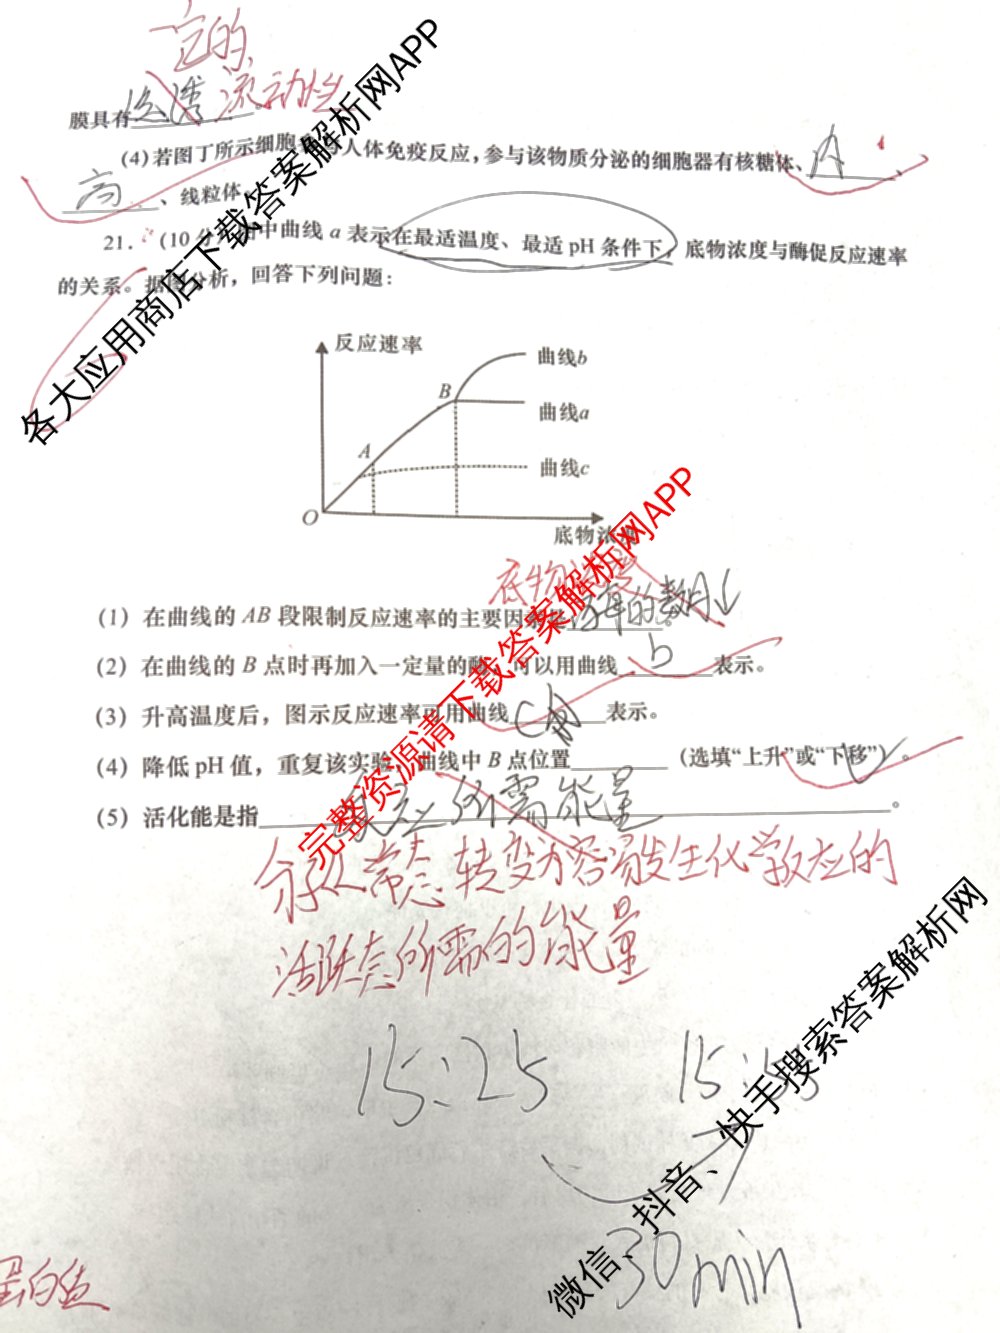 一定的
流动性
膜具有
(4)若图丁所示细胞 人体免疫反应，参与该物质分泌的细胞器有核糖体、 A 、
高 、线粒体。
21. (10分) 中曲线 a 表示在最适温度、最适 pH 条件下，底物浓度与酶促反应速率
的关系。据图分析，回答下列问题：
反应速率
曲线b
B
曲线a
A
曲线c
O
底物浓
底物浓度
(1) 在曲线的 AB 段限制反应速率的主要因 的数目
(2) 在曲线的 B 点时再加入一定量的 可以用曲线 b 表示。
(3) 升高温度后，图示反应速率可用曲线 c 表示。
(4) 降低 pH 值，重复该实验 曲线中 B 点位置 (选填“上升”或“下移”)。
(5) 活化能是指 所需能量 。
分子从常态转变为容易发生化学反应的
活跃态所需的能量
15:25 15:55
30min
蛋白质
各大应用商店下载答案解析网APP
完整资源请下载答案解析网APP
微信、抖音、快手搜索答案解析网